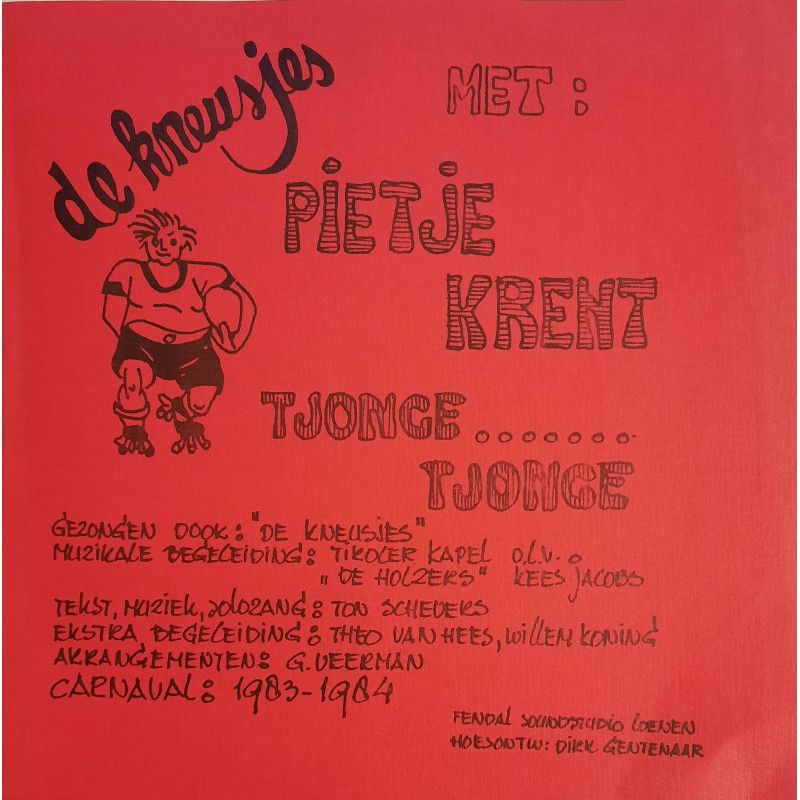 de kneusjes
MET:
PIETJE
KRENT
TJONGE.......
TJONGE
GEZONGEN DOOR: "DE KNEUSJES"
MUZIKALE BEGELEIDING: TIROLER KAPEL O.L.V.
"DE HOLZERS" KEES JACOBS
TEKST, MUZIEK, SOLOZANG: TON SCHEVERS
EKSTRA BEGELEIDING: THEO VAN HEES, WILLEM KONING
ARRANGEMENTEN: G. VEERMAN
CARNAVAL: 1983-1984
FENDAL SOUNDSTUDIO LOENEN
HOESONTW: DIRK GENTENAAR